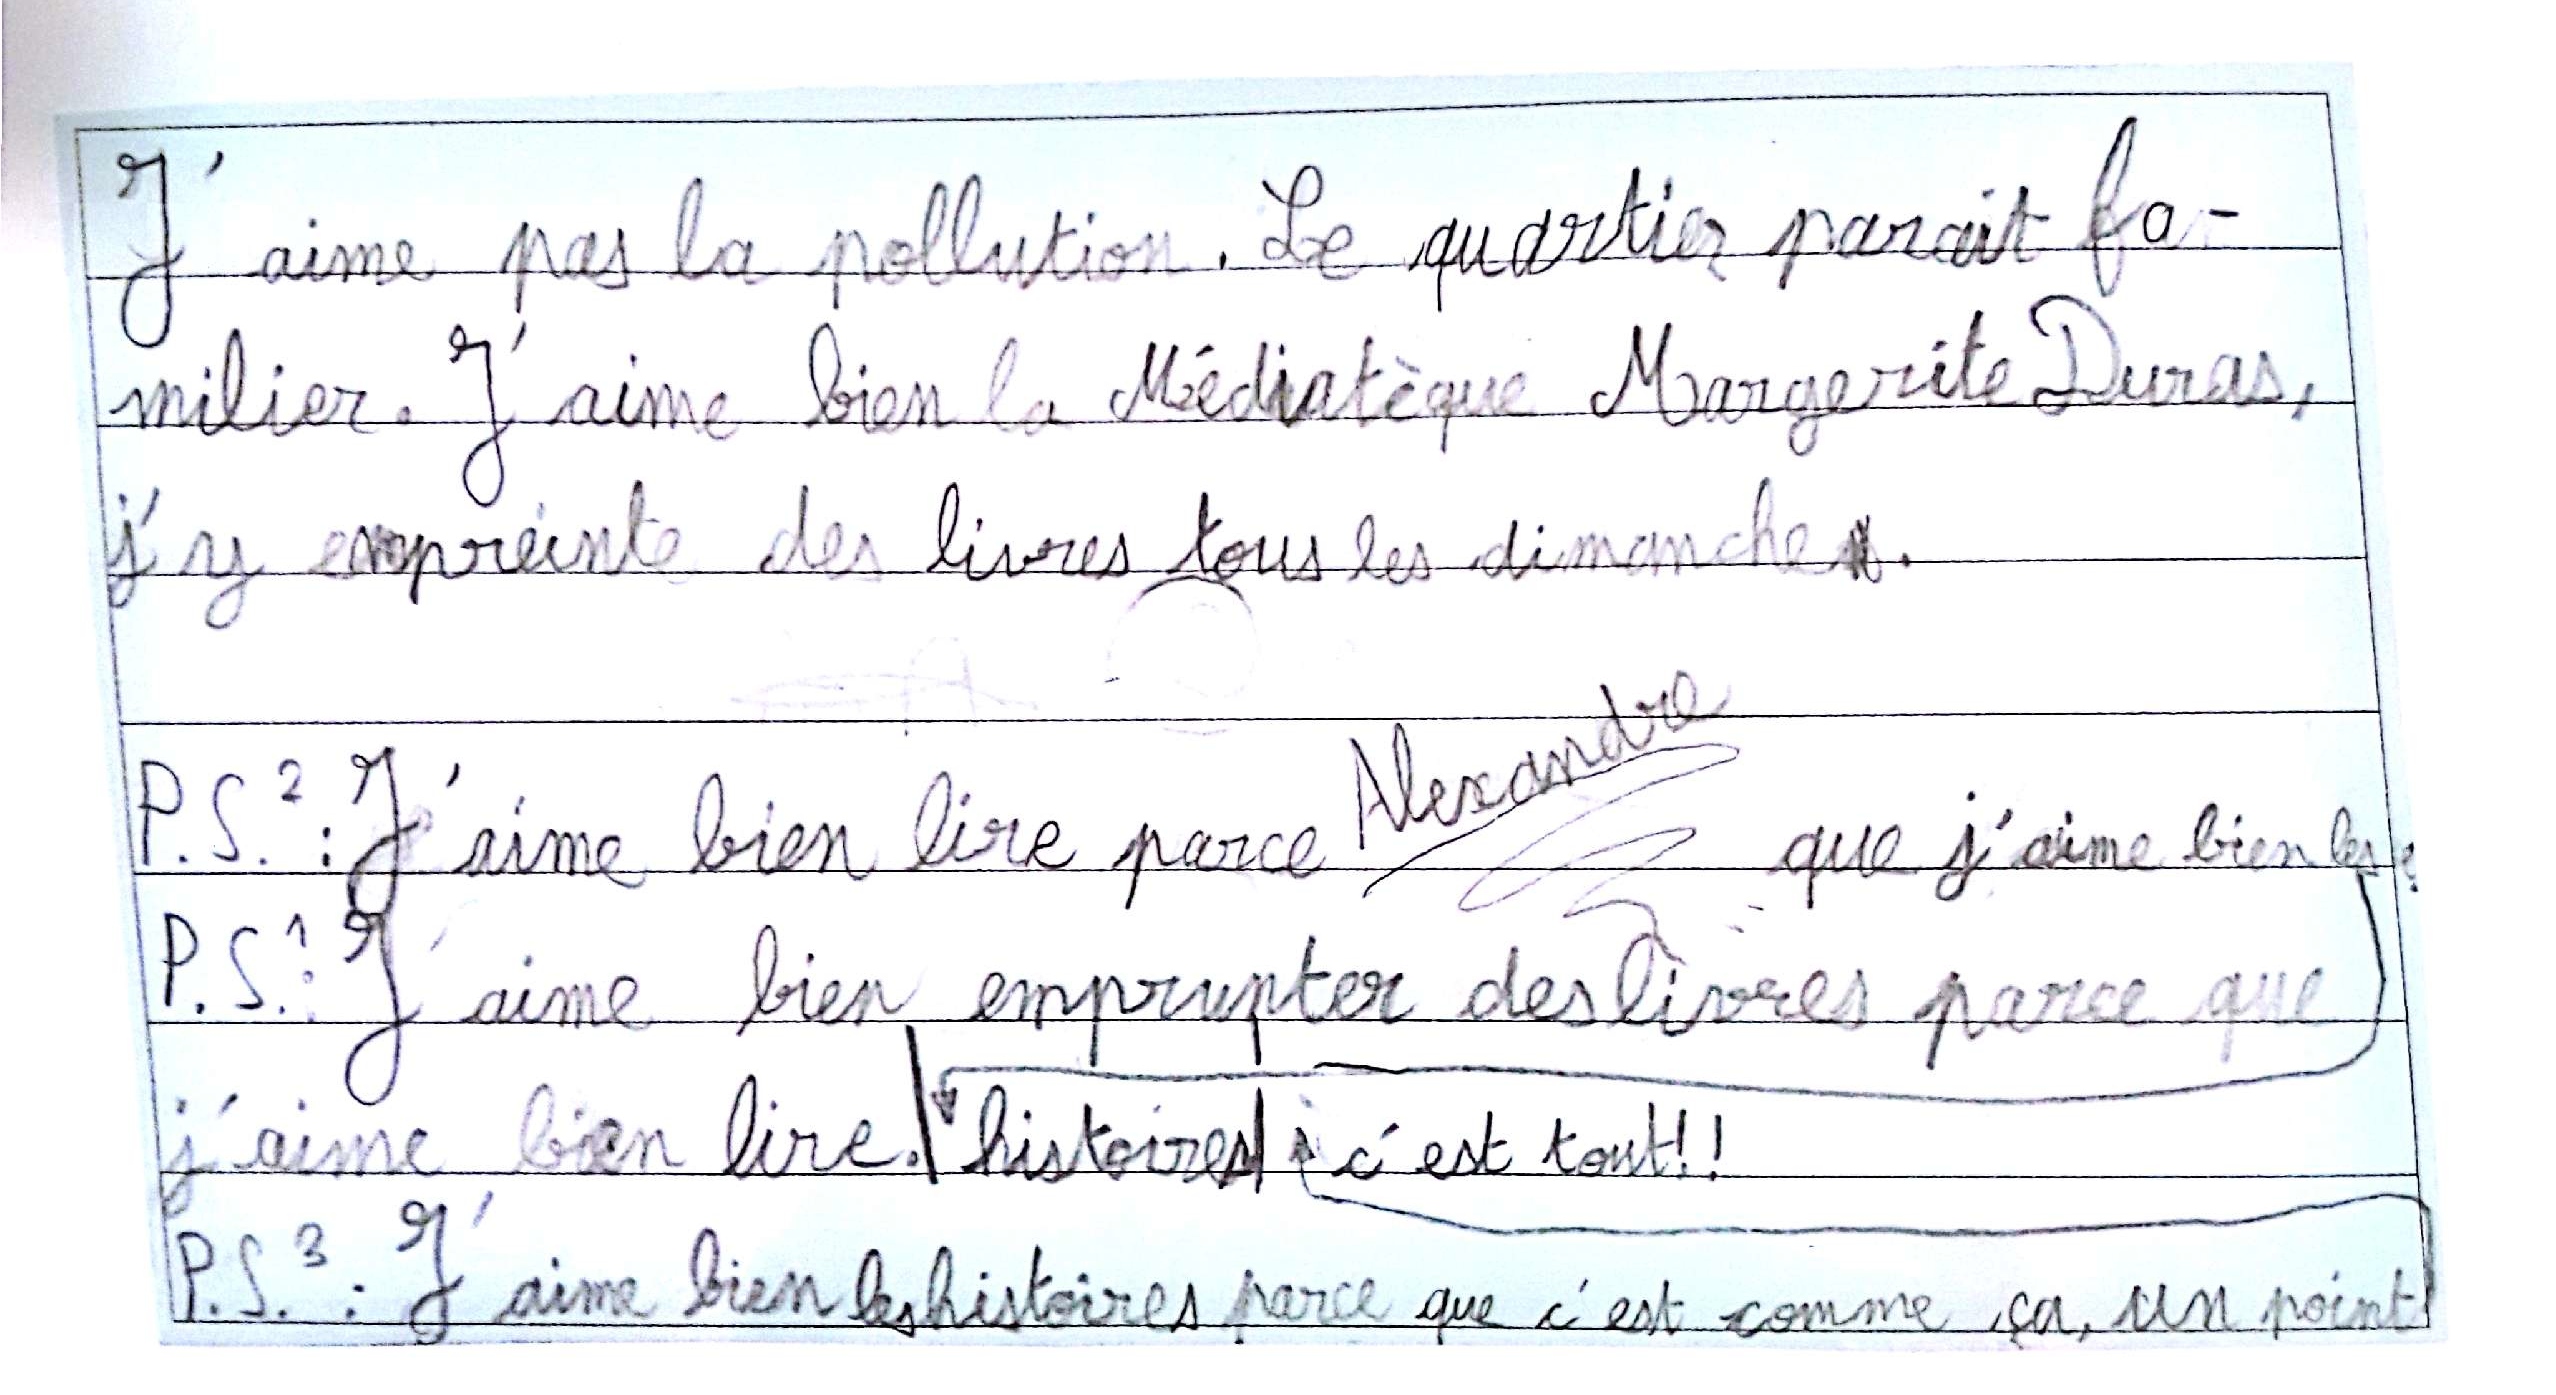 J'aime pas la pollution. Le quartier parait fa-
milier. J'aime bien la Médiatèque Margerite Duras,
j'y empreinte des livres tous les dimanches.
Alexandre
P.S.²: J'aime bien lire parce que j'aime bien les
P.S.¹: J'aime bien emprunter des livres parce que
j'aime bien lire. histoires c'est tout!!
P.S.³: J'aime bien les histoires parce que c'est comme ça, un point